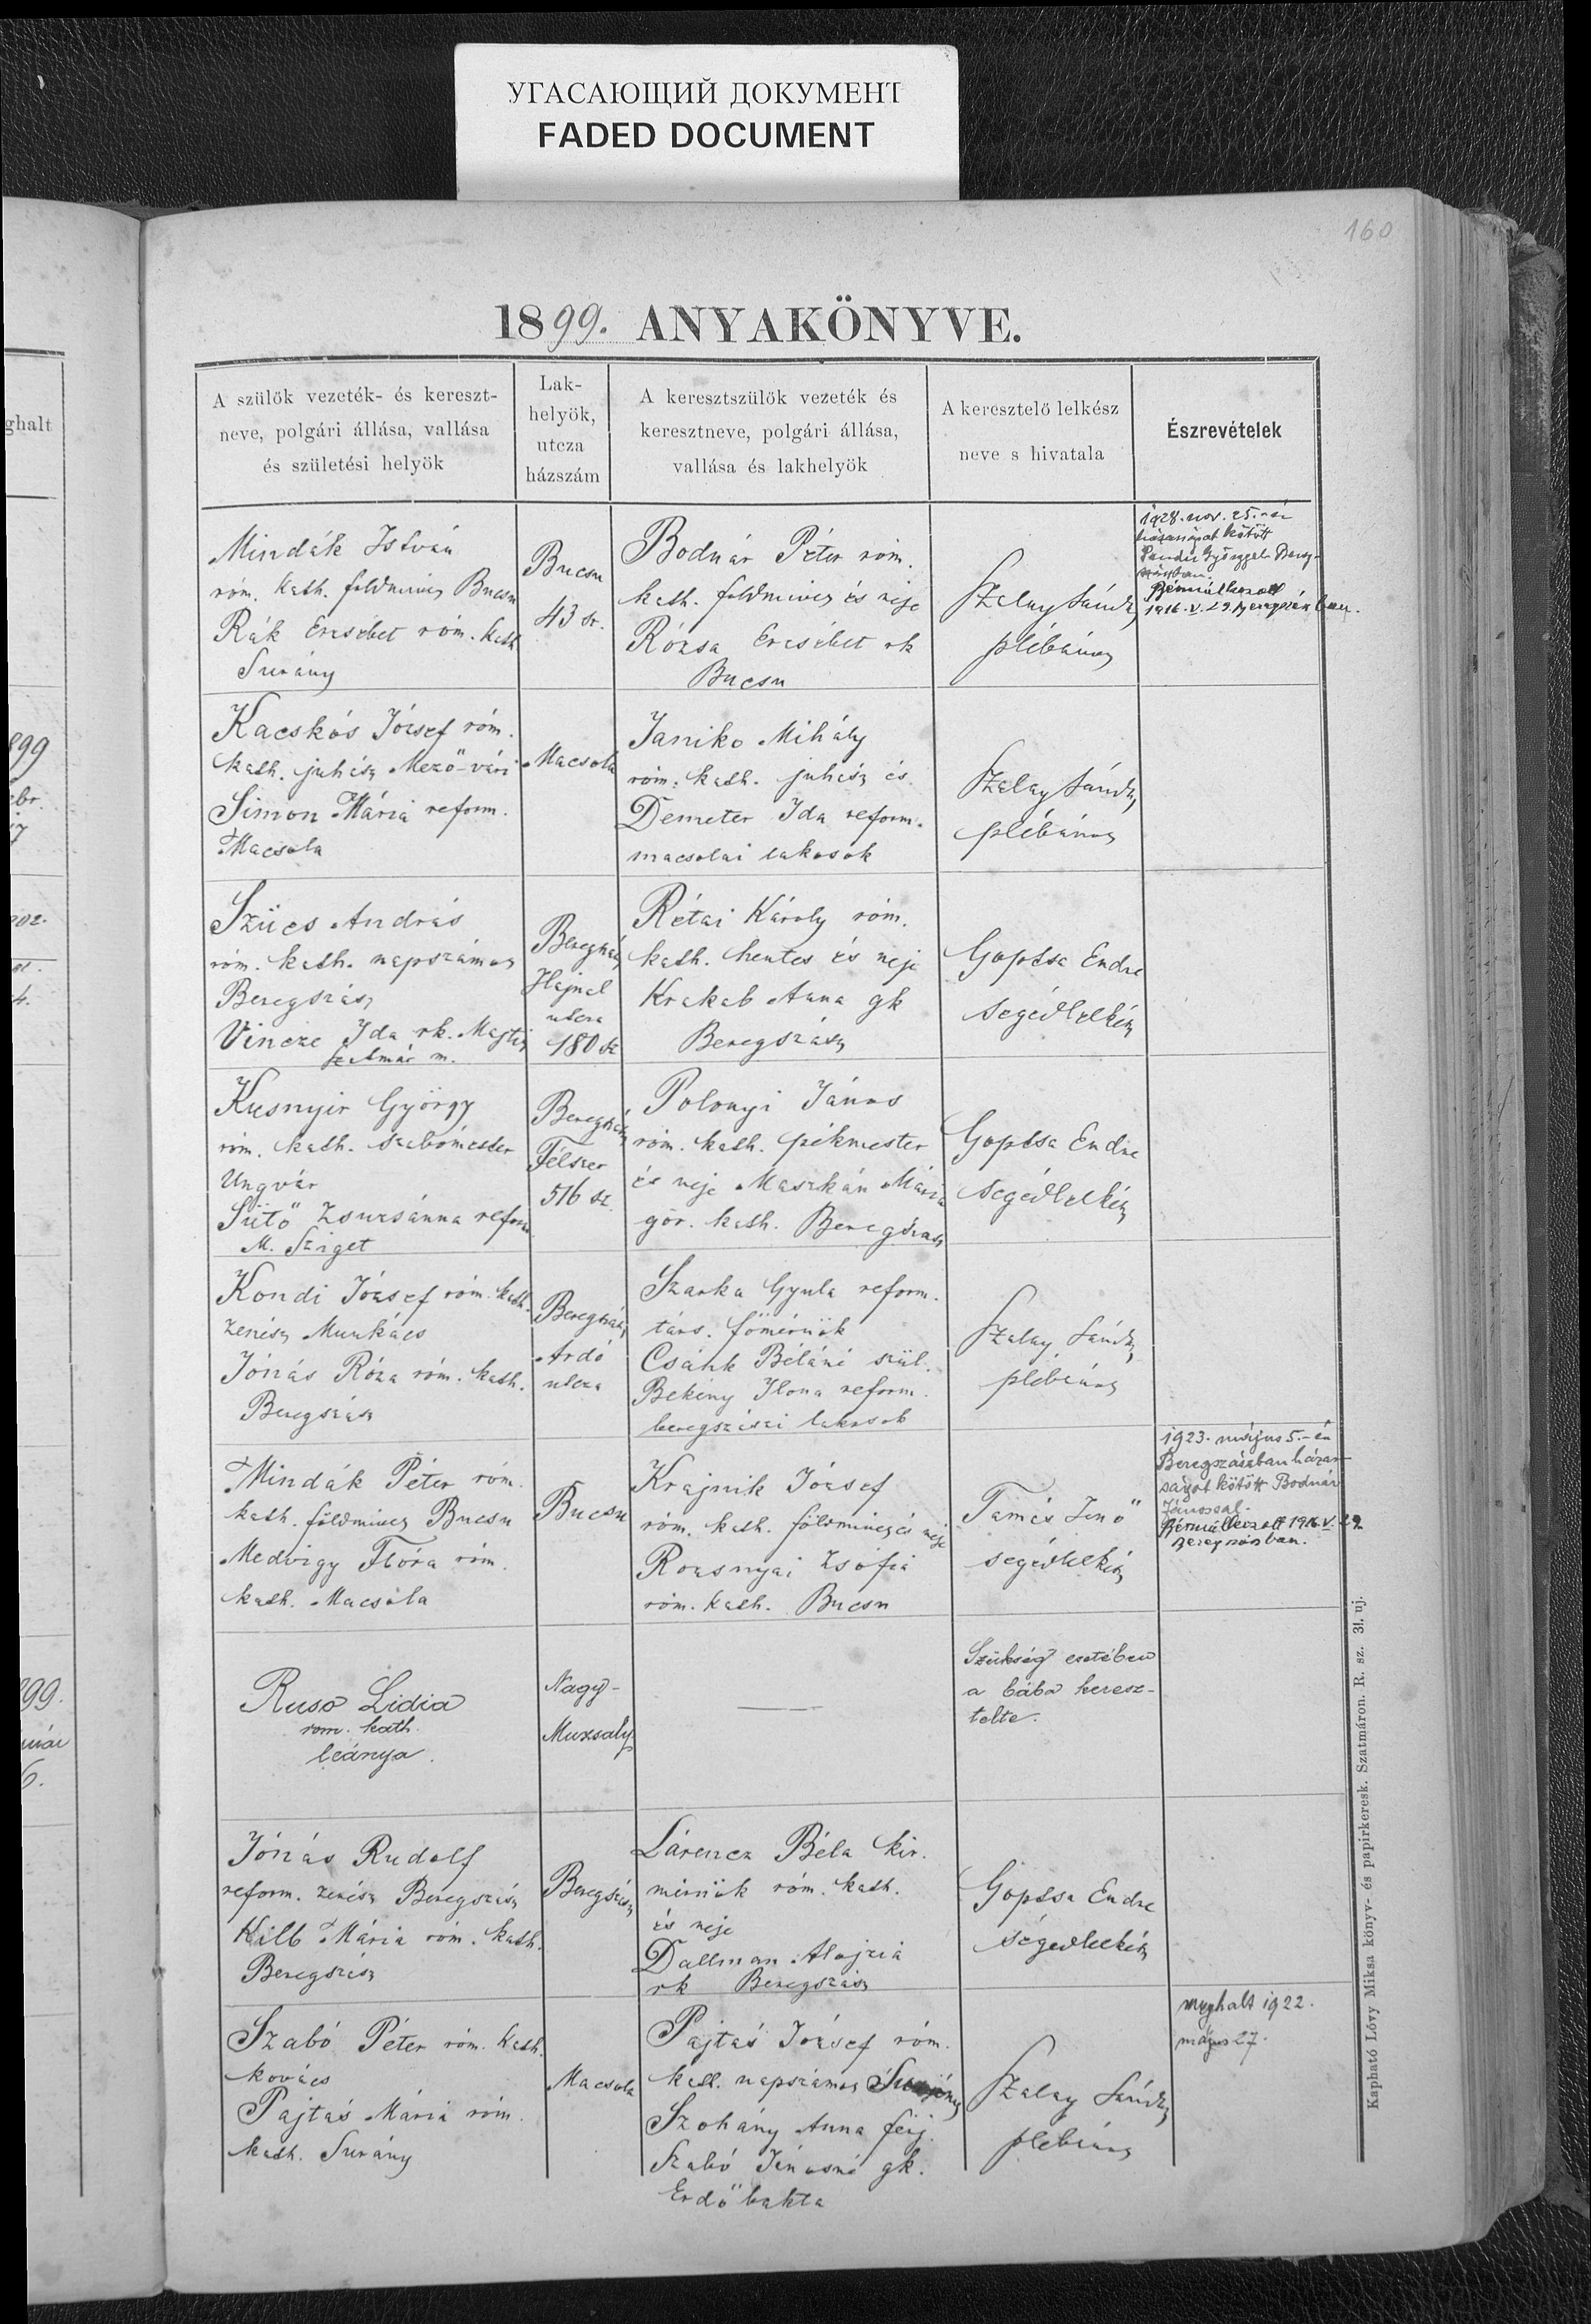 УГАСАЮЩИЙ ДОКУМЕНТ
FADED DOCUMENT
160
1899. ANYAKÖNYVE.
A szülők vezeték- és kereszt-
neve, polgári állása, vallása
és születési helyök
Lak-
helyök,
utcza
házszám
A keresztszülők vezeték és
keresztneve, polgári állása,
vallása és lakhelyök
A keresztelő lelkész
neve s hivatala
Észrevételek
ghalt
Mindák István
róm. kath. földmives Bucsu
Rák Erzsébet róm. kath
Surány
Bucsu
43 sz.
Bodnár Péter róm.
kath. földmives és neje
Rózsa Erzsébet rk
Bucsu
Szalay Sándor
plébános
1928. nov. 25.-én
házasságot kötött
Györggyel Bereg-
szászban.
Bérmálkozott
1916. V. 29. Beregszászban.
Kacskós József róm.
kath. juhász Mező-vári
Simon Mária reform.
Macsola
Macsola
Janiko Mihály
róm. kath. juhász és
Demeter Ida reform.
macsolai lakosok
Szalay Sándor
plébános
Szücs András
róm. kath. napszámos
Beregszász
Vincze Ida rk. Majtis
szatmár m.
Beregszász
Hajnal
utcza
180 sz
Rétai Károly róm.
kath. hentes és neje
Krakab Anna gk
Beregszász
Gopcsa Endre
segédlelkész
Kusnyir György
róm. kath. szabómester
Ungvár
Sütő Zsuzsánna reform
M. Sziget
Beregszász
Félszer
516 sz.
Polonyi János
róm. kath. pékmester
és neje Maszkán Mária
gör. kath. Beregszász
Gopcsa Endre
segédlelkész
Kondi József róm. kath.
zenész Munkács
Jónás Róza róm. kath.
Beregszász
Beregszász
Ardó
utcza
Szarka Gyula reform.
társ. főmérnök
Csánk Béláné szül.
Bekény Ilona reform.
beregszászi lakosok
Szalay Sándor
plébános
Mindák Péter róm.
kath. földmives Bucsu
Medvigy Flóra róm.
kath. Macsola
Bucsu
Krajnik József
róm. kath. földmives és neje
Rozsnyai Zsófia
róm. kath. Bucsu
Tamás Jenő
segédlelkész
1923. május 5.-én
Beregszászban házas-
ságot kötött Bodnár
Jánossal.
Bérmálkozott 1916. V. 29
Beregszászban.
Ruso Lidia
rom. kath.
leánya.
Nagy-
Muzsaly.
Szükség esetében
a bába keresz-
telte.
Jónás Rudolf
reform. zenész Beregszász
Kilb Mária róm. kath.
Beregszász
Beregszász
Lárencz Béla kir.
mérnök róm. kath.
és neje
Dallman Alojzia
rk Beregszász
Gopcsa Endre
segédlelkész
Szabó Péter róm. kath.
kovács
Pajtás Mária róm.
kath. Surány
Macsola
Pajtás József róm.
kath. napszámos
Szohány Anna férj.
Szabó Jánosné gk.
Erdőbakta
Szalay Sándor
plébános
meghalt 1922.
május 27.
Kapható Lővy Miksa könyv- és papirkeresk. Szatmáron. R. sz. 3!. uj.